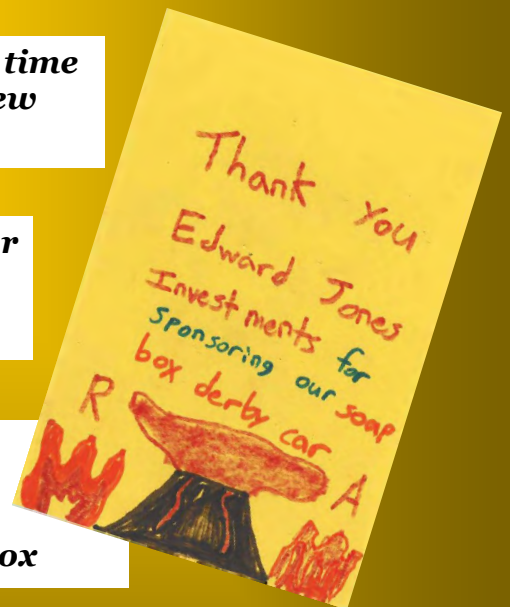 time
ew
r
ox
Thank You
Edward Jones
Investments for
sponsoring our soap
box derby car
R A